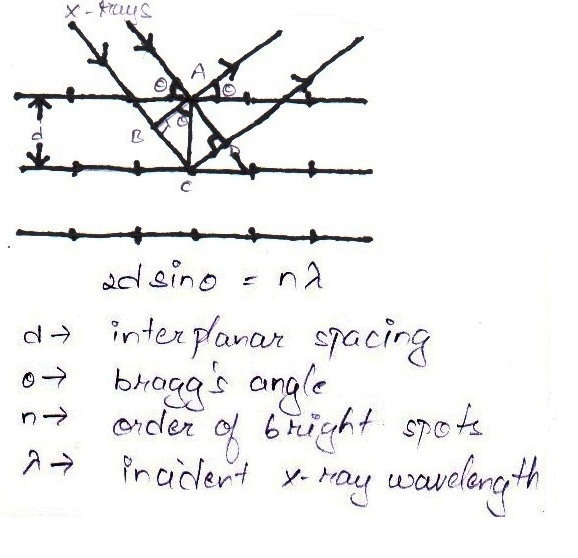 x-rays
A
θ
θ
B
θ
D
d
C
2d sinθ = nλ
d → interplanar spacing
θ → bragg's angle
n → order of bright spots
λ → incident x-ray wavelength